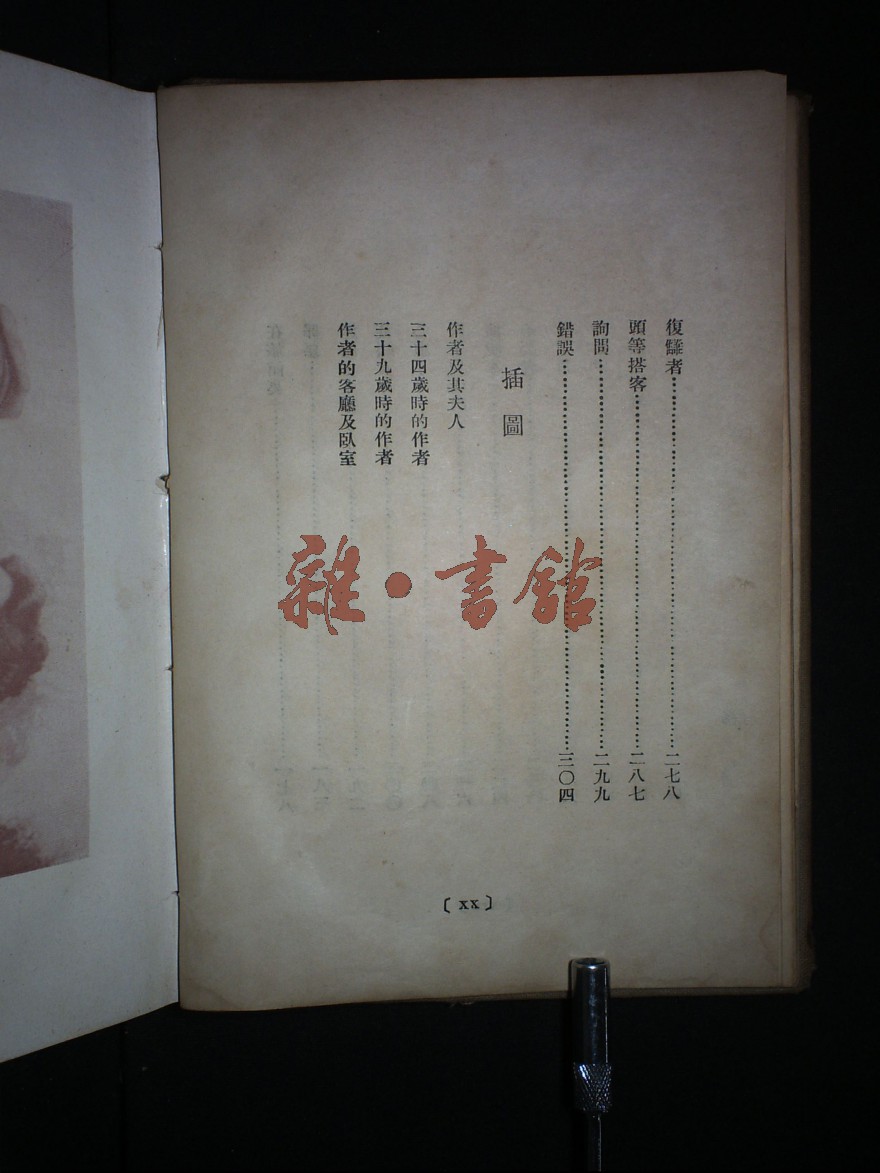 復讎者……二七八
頭等搭客……二八七
詢問……二九九
錯誤……三〇四
插圖
作者及其夫人
三十四歲時的作者
三十九歲時的作者
作者的客廳及臥室
雜•書館
〔xx〕